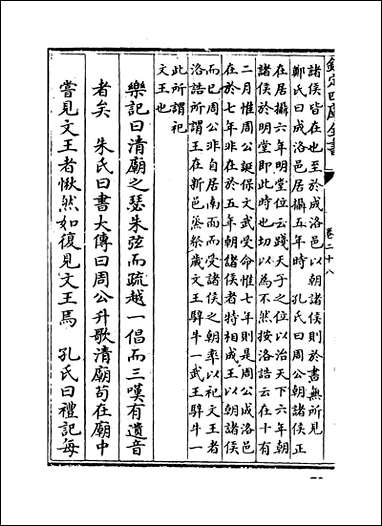 欽定四庫全書
卷二十八
諸侯皆在也至於成洛邑以朝諸侯則於書無所見
鄭氏曰成洛邑居攝五年時 孔氏曰周公朝諸侯正
在居攝六年明堂位云踐天子之位以治天下六年朝
諸侯於明堂即此時也切以為不然按洛誥云在十有
二月惟周公誕保文武受命惟七年則是周公成洛邑
在於七年非在於五年朝諸侯者特相成王以朝諸侯
而已周公非自居南面而受諸侯之朝率以祀文王者
洛誥所謂王在新邑烝祭歲文王騂牛一武王騂牛一
此所謂祀
文王也
樂記曰清廟之瑟朱弦而疏越一倡而三嘆有遺音
者矣 朱氏曰書大傳曰周公升歌清廟苟在廟中
嘗見文王者愀然如復見文王焉 孔氏曰禮記每